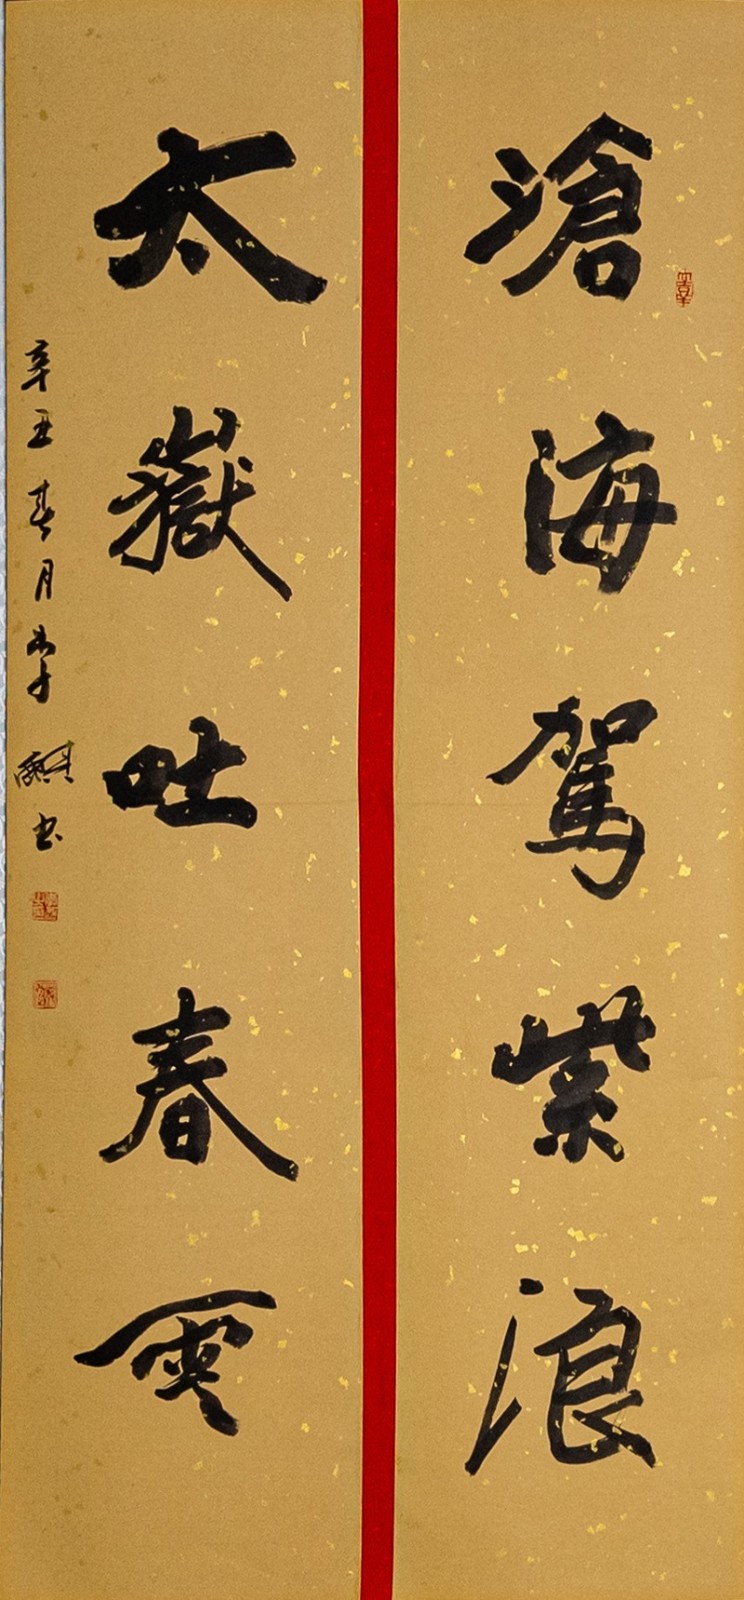 滄海駕紫浪
太嶽吐春雲
辛丑春月李麒书